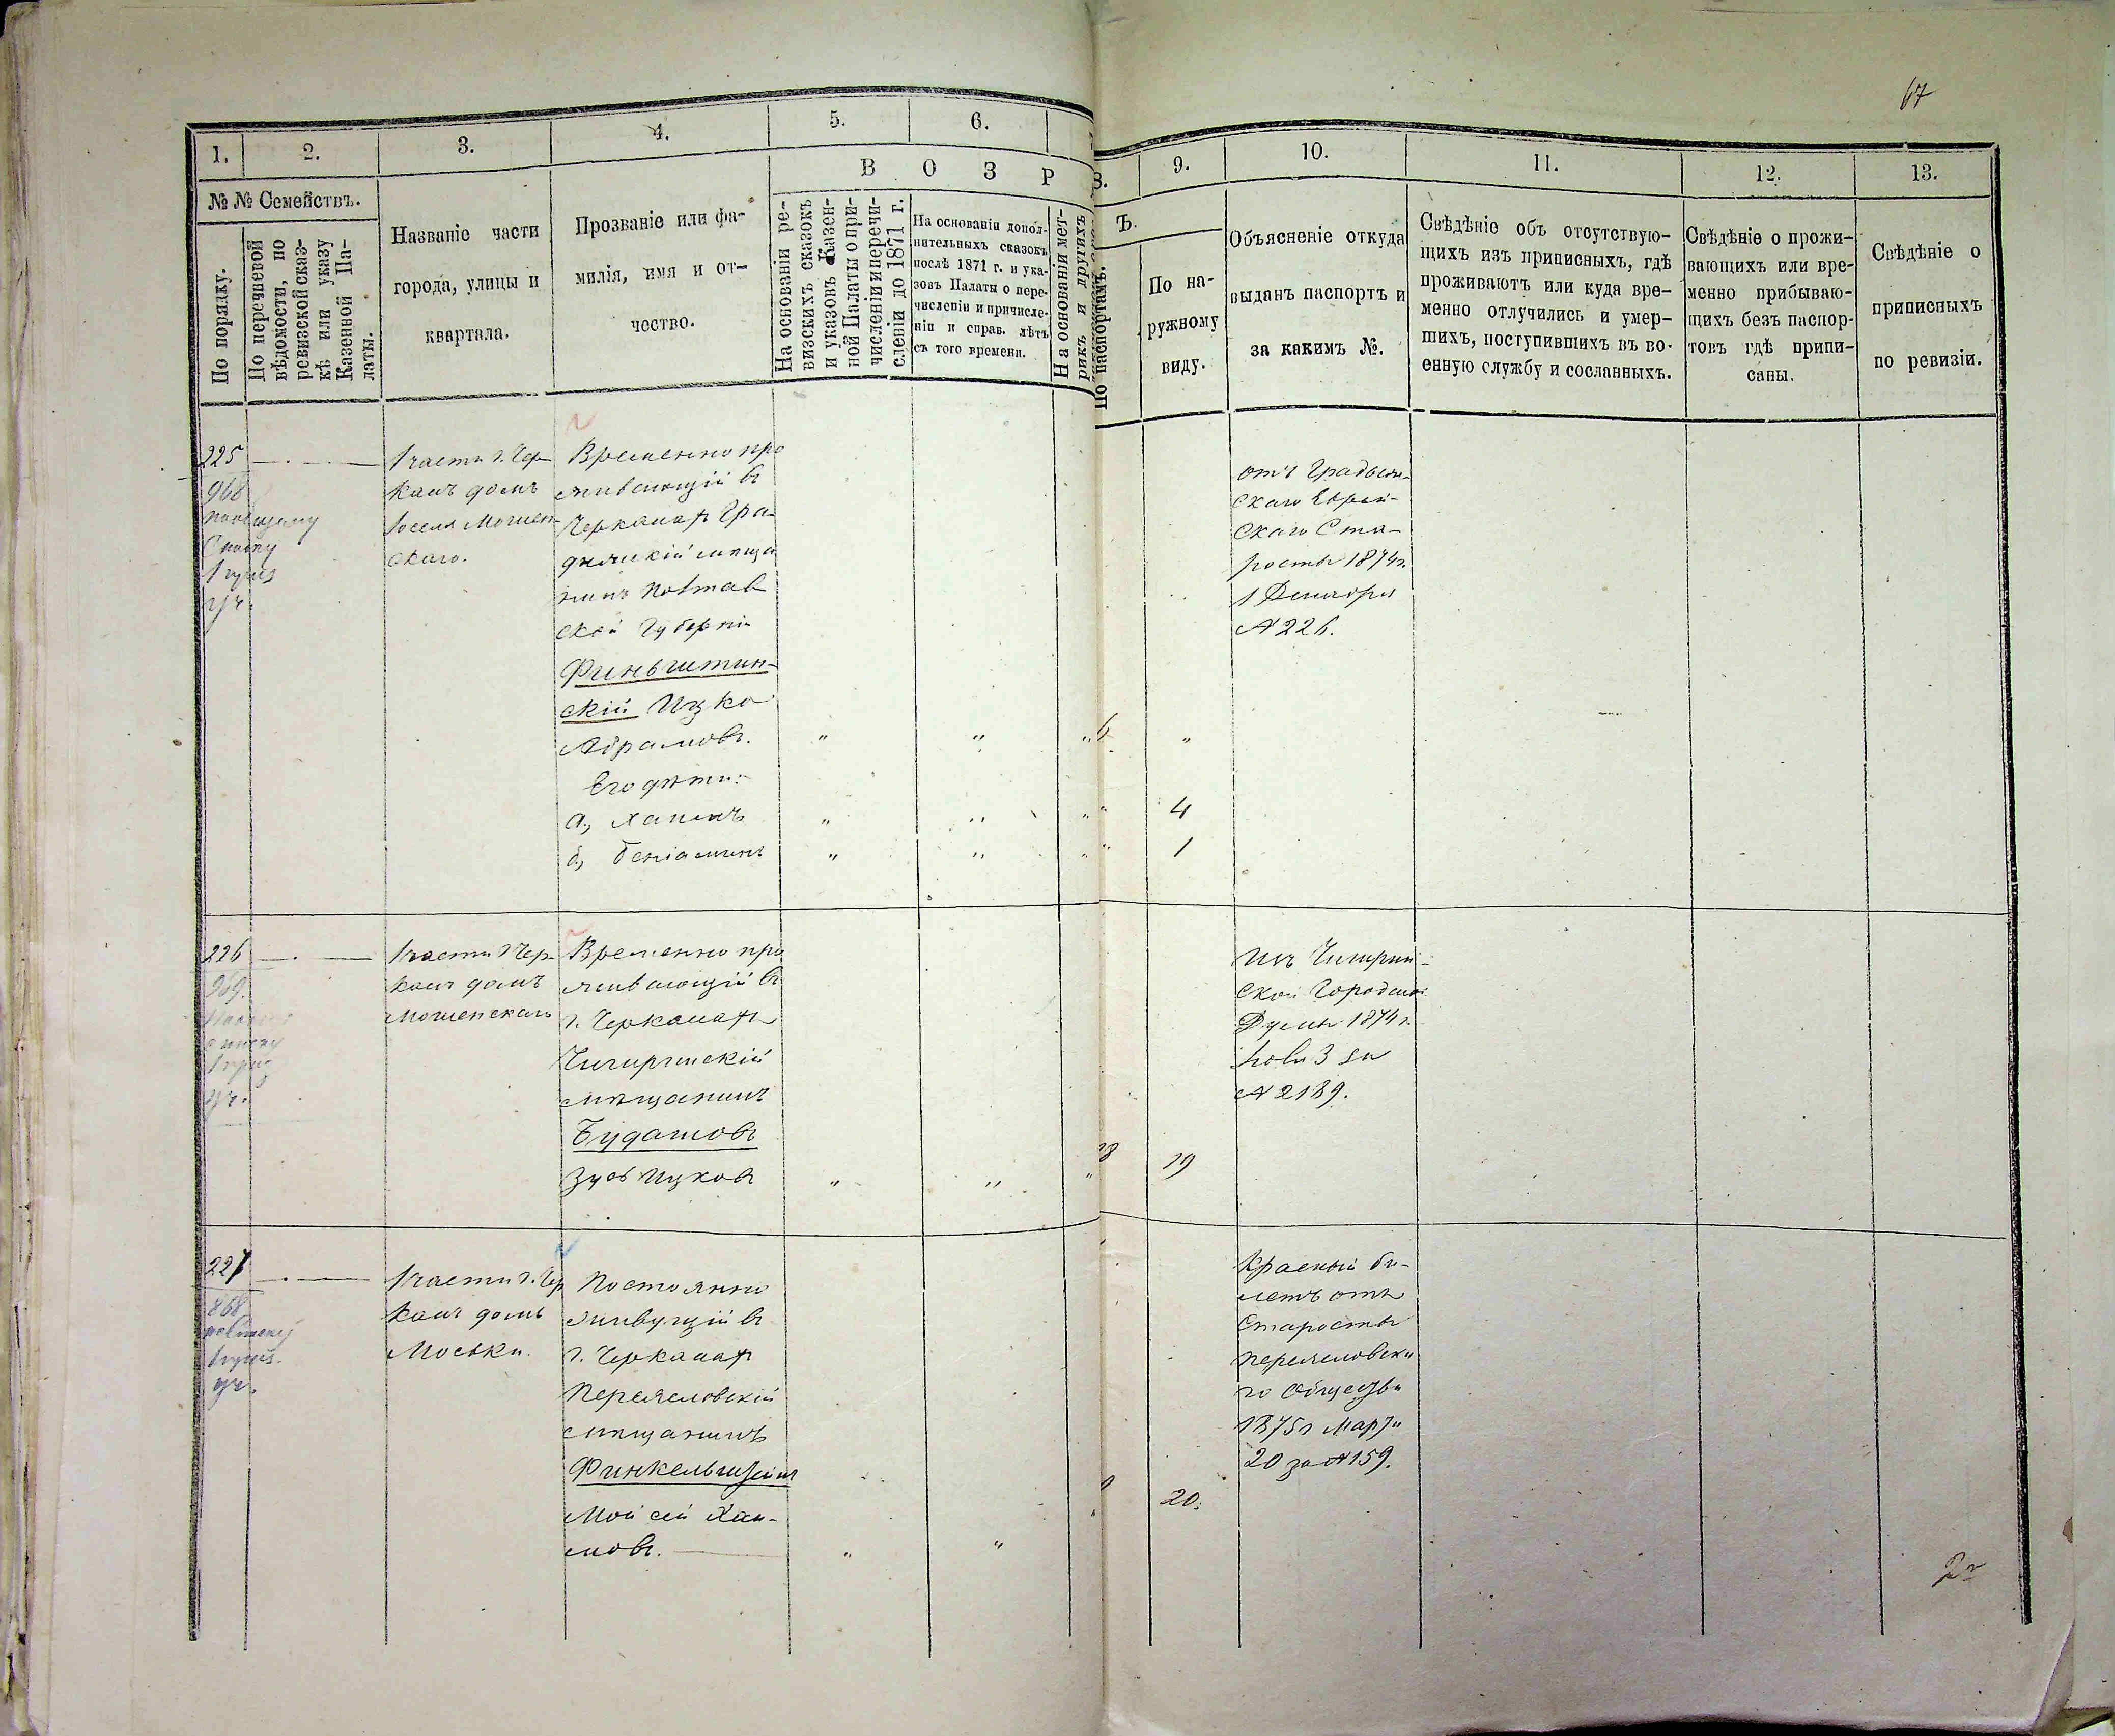 67
1.
2.
3.
4.
5.
6.
8.
9.
10.
11.
12.
13.
№ № Семействъ.
По порядку.
По перечневой
вѣдомости, по
ревизской сказ-
кѣ или указу
Казенной Па-
латы.
Названіе части
города, улицы и
квартала.
Прозваніе или фа-
милія, имя и от-
чество.
В О З Р
На основаніи ре-
визскихъ сказокъ
и указовъ Казен-
ной Палаты о при-
численіи и перечи-
сленіи до 1871 г.
На основаніи допол-
нительныхъ сказокъ
послѣ 1871 г. и ука-
зовъ Палаты о пере-
численіи и причисле-
ніи и справ. лѣтъ
съ того времени.
На основаніи мет-
рикъ и другихъ
По паспортамъ.
Ъ.
По на-
ружному
виду.
Объясненіе откуда
выданъ паспортъ и
за какимъ №.
Свѣдѣніе объ отсутствую-
щихъ изъ приписныхъ, гдѣ
проживаютъ или куда вре-
менно отлучились и умер-
шихъ, поступившихъ въ во-
енную службу и сосланныхъ.
Свѣдѣніе о прожи-
вающихъ или вре-
менно прибываю-
щихъ безъ паспор-
товъ гдѣ припи-
саны.
Свѣдѣніе о
приписныхъ
по ревизіи.
225
968
1 части г. Чер-
касъ домъ
Іоселя Мошен-
скаго.
Временно про
живающій въ
Черкасахъ Гра-
дижскій мѣща
нинъ Полтав
ской Губерніи
Финьштин-
скій Ицко
Абрамовъ.
Его дѣти:
а, Хаимъ
б, Беніаминъ
4
1
отъ Градиж-
скаго Еврей-
скаго Ста-
росты 1874 г.
1 Декабря
№ 226.
226
969.
1 части г Чер-
касъ домъ
Мошенскаго
Временно про
живающій въ
г. Черкасахъ
Чигиринскій
мѣщанинъ
Будашовъ
Зусь Ицковъ
18
19
Изъ Чигирин-
ской Городской
Думы 1874 г.
Ноября 3 за
№ 2189.
227
868
1 части г. Чер
касъ домъ
Моськи.
Постоянно
живущій въ
г. Черкасахъ
Переяеловскій
мѣщанинъ
Финкельштейнъ
Мойсей Хаи-
мовъ.
20.
Красный би-
летъ отъ
Старосты
Переяеловска
го Общества
1875 г Марта
20 за № 159.